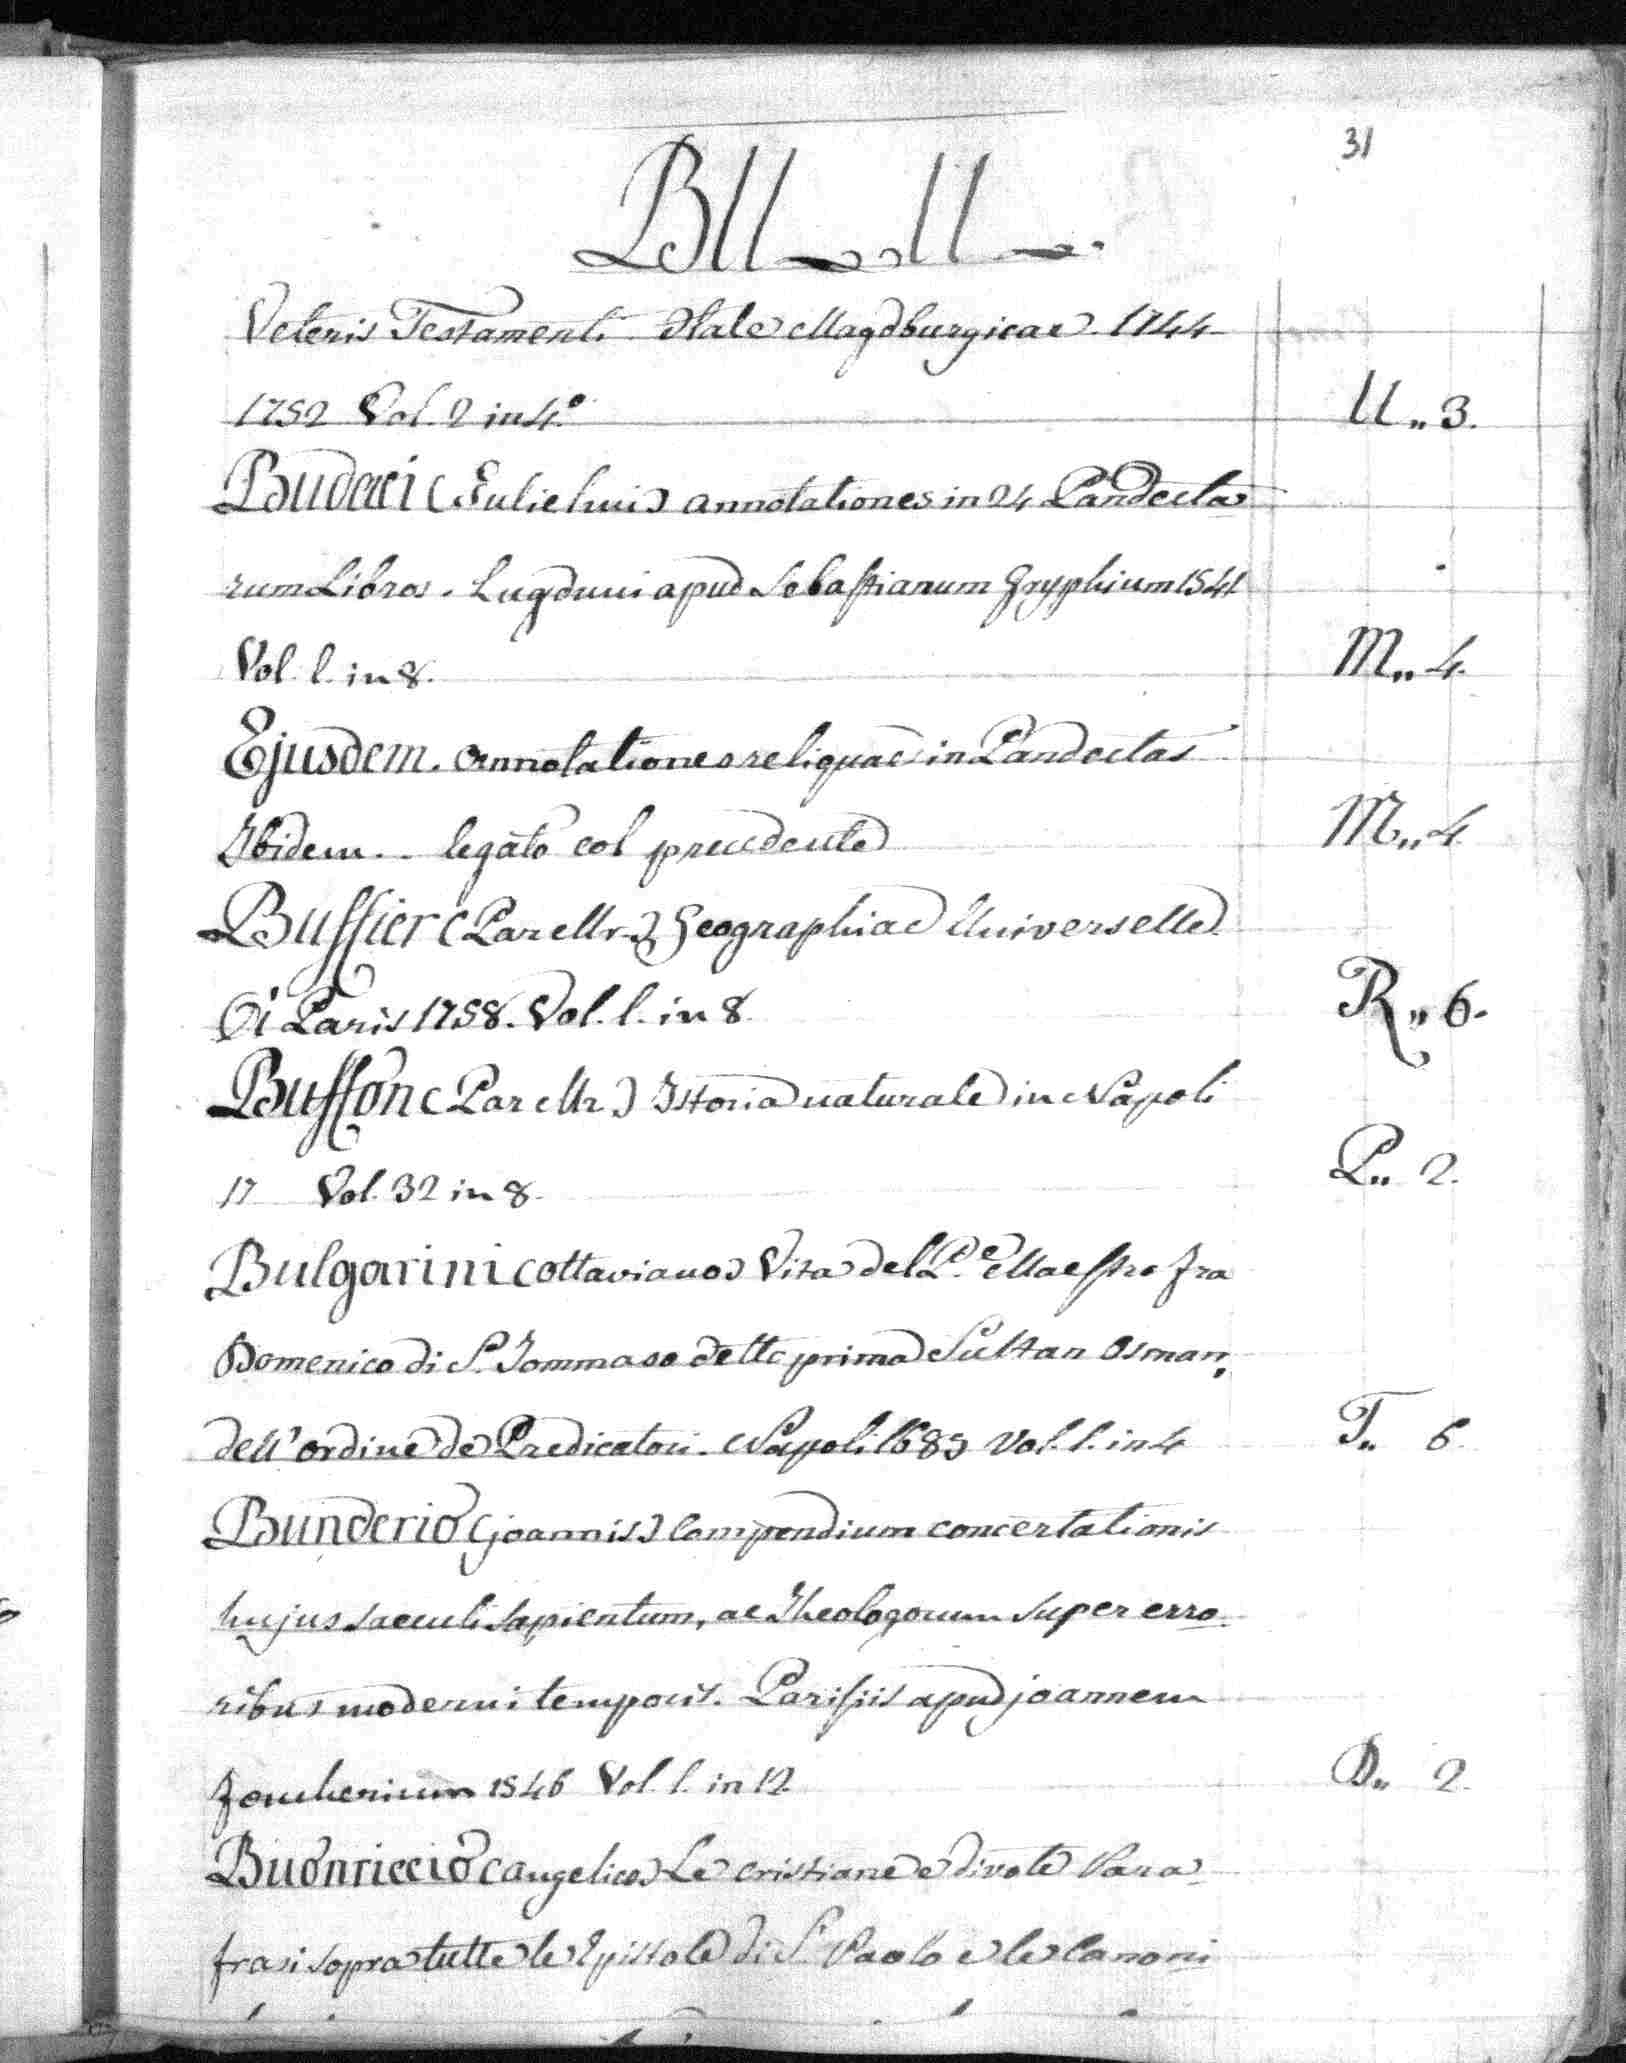 31
BU U
Veteris Testamenti Hale Magdburgicae 1744
1752 Vol. 2 in 4.º
U„ 3.
Budaei (Gulielmi) annotationes in 24 Pandecta
rum Libros. Lugduni apud Sebastianum Gryphium 1541
Vol. 1. in 8.
M„ 4.
Ejusdem. Annotationes reliquae in Pandectas
Ibidem.. legato col precedente
M„ 4.
Buffier (Par Mr.) Geographiae Universelle
A' Paris 1758. Vol. 1. in 8
R„ 6.
Buffon (Par Mr.) Istoria naturale in Napoli
17 Vol. 32 in 8.
P„ 2.
Bulgarini (Ottaviano) Vita del P.e Maestro Fra
Domenico di S. Tommaso detto prima Sultan Osman,
dell'ordine de Predicatori. Napoli 1689 Vol. 1. in 4
T„ 6.
Bunderio (Joannis) Compendium concertationis
hujus saeculi sapientum, ac Theologorum super erro
ribus moderni temporis. Parisiis apud joannem
Foucherium 1546 Vol. 1. in 12.
D„ 2.
Buonriccio (Angelico) Le cristiane e divote Para
frasi sopra tutte le Epistole di S. Paolo e le Canoni